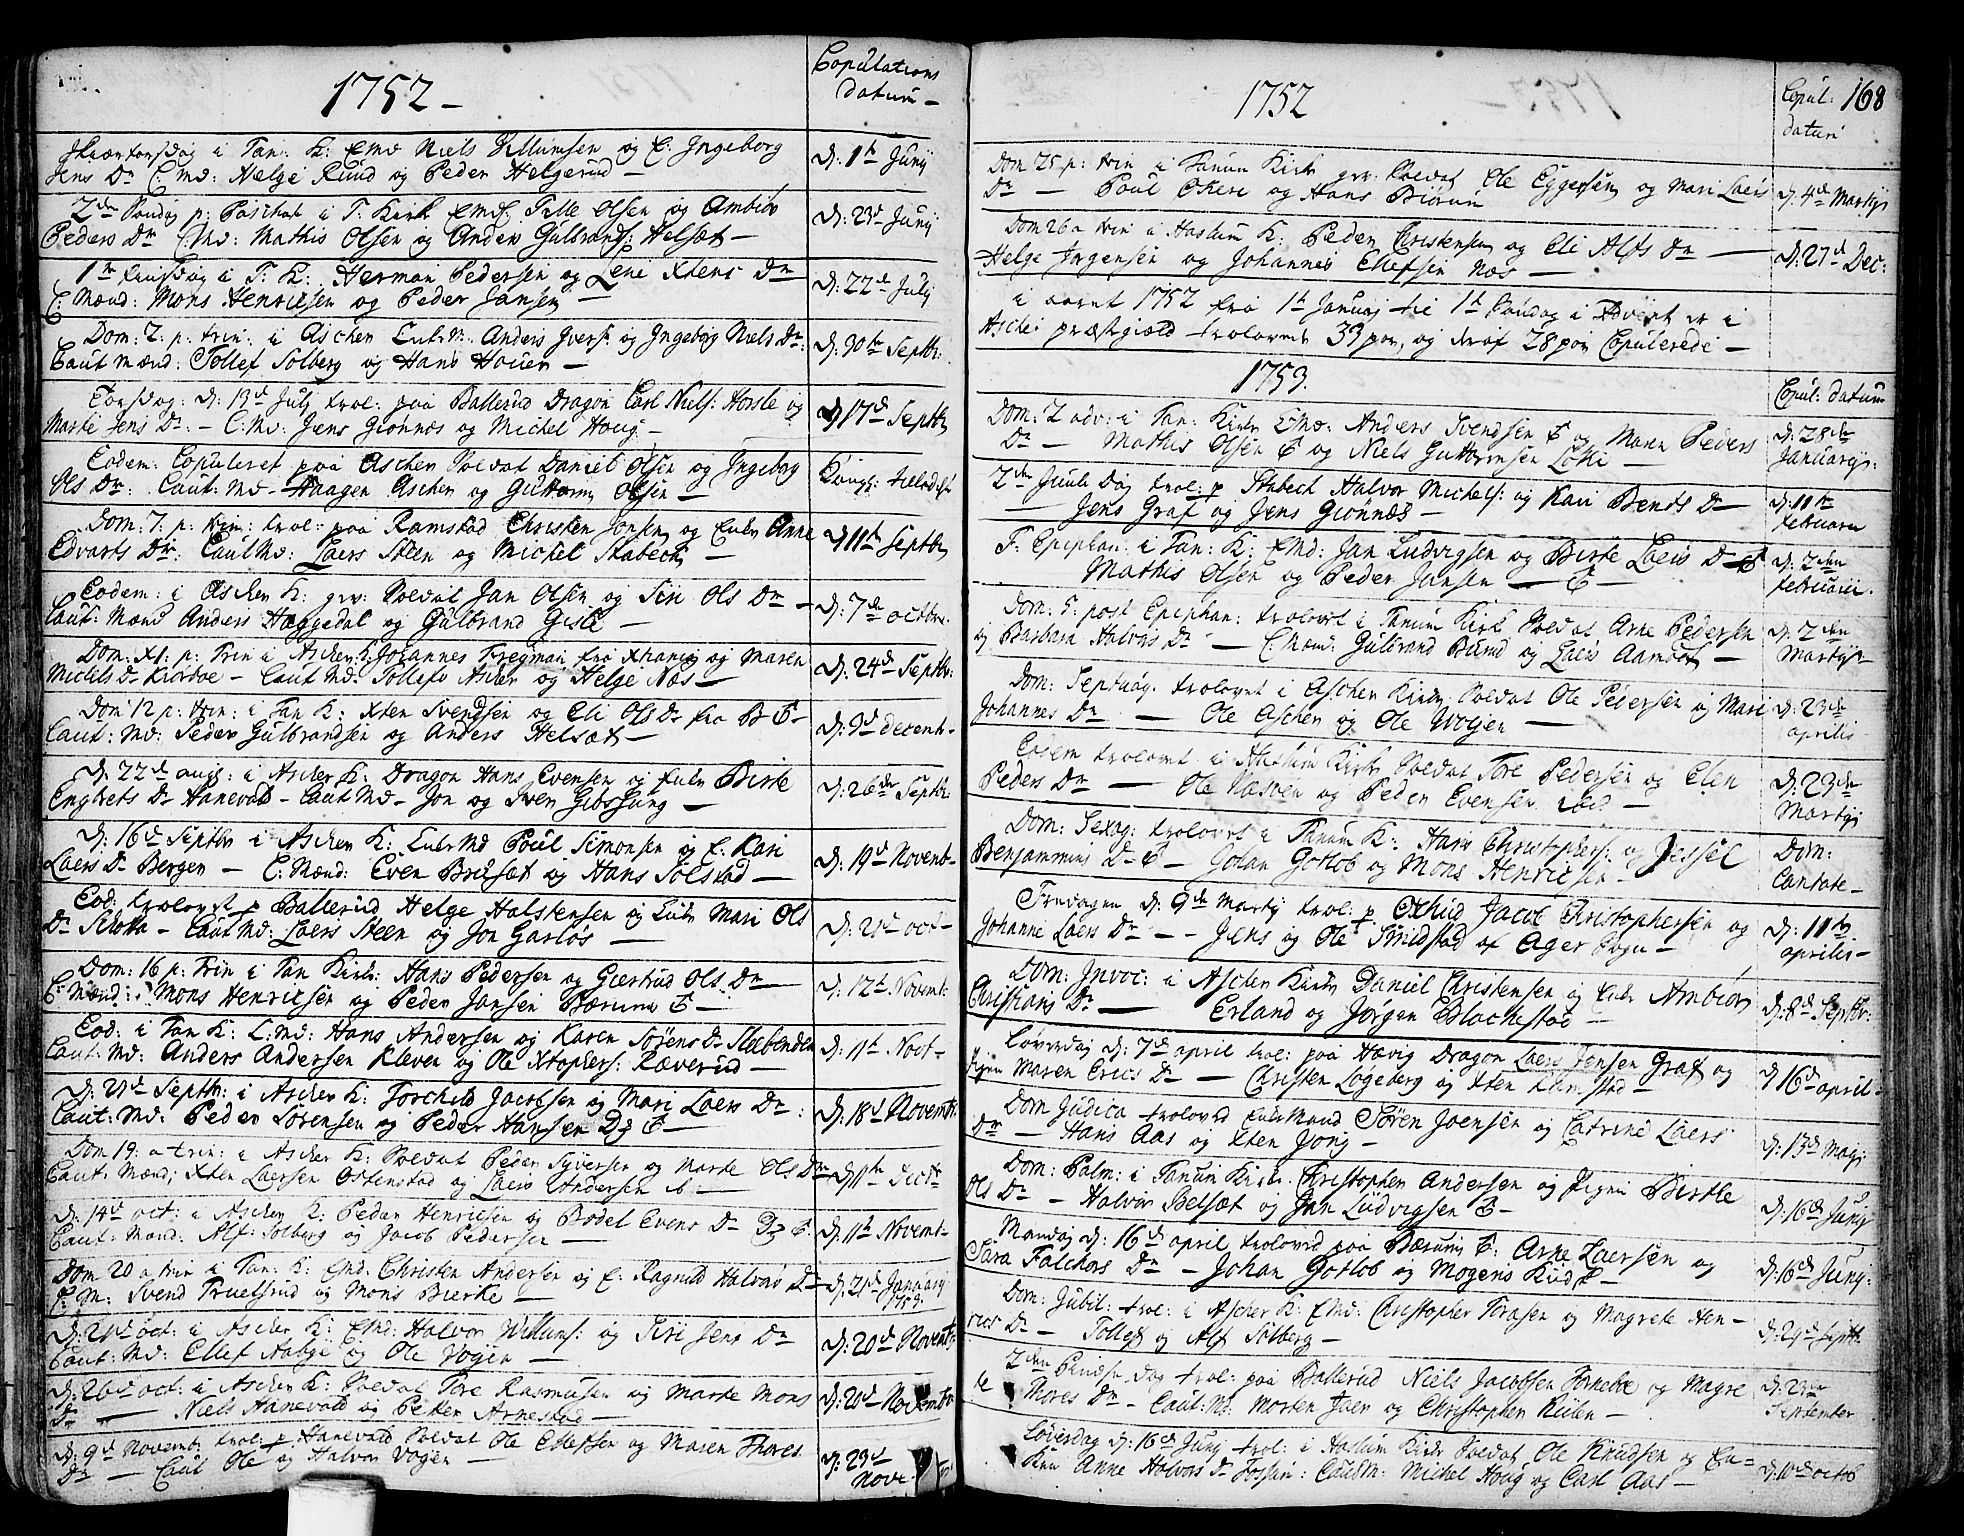 1752 -
Copulations
datum -
Skiærtorsdag i Tan: K: EMd Niels Villumsen og E: Ingeborg
Jens Dr C: Md: Helge Ruud og Peder Helgerud -
D: 1t Junij
2den Søndag p: Paschat i T: Kirk EMd: Tille Olsen og Ambiør
Peders Dr C: Md: Mathis Olsen og Anders Gulbrands: Helset -
D: 23d Junij
1te til i T: K: Herman Pedersen og Lene Xtens Dr
C: Mænd: Mons Henricsen og Peder Jansen -
D: 22de Julij
Dom: 2 p: trin: i Ascher Enk:M. Anders Ivers: og Ingeborg Niels Dr:
Caut Mænd: Tollef Solberg og Hans Houer -
D: 30te Septbr:
Torsdag: D: 13d July trol: paa Ballerud Dragon Carl Niels: Horsle og
Marte Jens Dr: - C: Md: Jens Gionnæs og Michel Houg -
D: 17d Septbr
Eodem: Copuleret paa Ascher Soldat Daniel Olsen og Ingeborg
Ols Dr: Caut: Md - Haagen Ascher og Guttorm Olsen -
Dom: 7: p: trin: trol: paa Ramstad Christen Jonsen og Enke Anne
Edvarts Dr: Caut Md: Laers Steen og Michel Stabech -
D: 11t Septbr
Eodem: i Ascher K: Soldat Jan Olsen og Siri Ols Dr -
Caut: Mænd Anders Haggedal og Gulbrand Gisle -
D: 7de octbr.
Dom: XI: p: Trin i Ascher K: Johannes Tregman fra Xhania og Maren
Michels Dr - Caut Md: Tollef Ascher og Helge Næs -
D: 24de Septbr:
Dom 12 p: trin: i Tan K: Xten Svendsen og Eli Ols Dr fra B E -
Caut: Md: Peder Gulbrandsen og Anders Helset -
D: 3d decemb -
D: 22d aug: i Ascher K: Dragon Hans Evensen og Enke Birte
Engbrets Dr Hanevald - Caut Md - Jon og Sven Gibssung -
D: 26de Septbr:
D: 16d Septbr i Ascher K: Enke Md Poul Simonsen og E. Kari
Laers Dr Bergen - C: Mænd: Even Brusæt og Hans Solstad -
D: 19d Novemb -
Eod: trolovet p Ballerud Helge Halstensen og Enke Mari Ols
Dr Slotta - Caut Md: Laers Steen og Jon Garløs -
D: 21d oct -
Dom: 16 p: Trin i Tan Kirk: Hans Pedersen og Giertrud Ols Dr
C: Mænd: Mons Henricsen og Peder Jansen Bærums E -
D: 12t. Novemt:
Eod: i Tan K: E: Md: Hans Andersen og Karen Sørens Dr Slæbenden
Caut: Md: Anders Andersen Kleven og Ole Xtophers: Ræverud -
D: 11t Novt -
D: 21d Septbr: i Ascher K: Torchild Jacobsen og Mari Laers Dr:
Caut: Md: Peder Sørensen og Peder Hansen E -
D: 18d Novemb:
Dom 19: a trin: i Ascher K: Soldat Peder Syversen og Marte Ols Dr
Caut: Mænd; Xten Laersen Ostenstad og Laers Andersen ib -
D: 11te
D: 14d oct: i Ascher K: Peder Henricsen og Bodel Evens Dr
Caut: Mænd: Alf: Solberg og Jacob Pedersen -
D: 11t Novemt -
Dom 20 a trin i Tan: K: EMd. Christen Andersen og E: Ragnild Halvors Dr -
C: M: Svend Truelsrud og Mons Bierke -
D: 21d January
1753
D: 21d oct: i Ascher K: EMd: Halvor Willums: og Siri Jens Dr
Caut: Md: Ellef Hobge og Ole Vøyen -
D: 20d Novemb:
D: 26d oct: i Ascher K: Soldat Tore Rasmusen og Marte Mons
Dr - Niels Hanevald og Peder Arnestad -
D: 20d Novembr
D: 9d Novembr trol: p Hanevald Soldat Ole Ellefsen og Maren Thores
Dr - Caut Ole og Halvor Vøyen -
D: 23d
Nove
1752
Copul:
datum
168
Dom 25 p: trin i Tanum Kirke Soldat Ole Eggertsen og Mari Laers
Dr - Poul Okere og Hans Biørum
D: 4d Martij
Dom 26 a trin i Haslum K: Peder Christensen og Eli Alfs Dr -
Helge Jørgensen og Johannes Ellefsen Næs -
D: 27d Dec:
i aaret 1752 fra 1t Januaij til 1t Søndag i Advent er i
Ascher præstegield trolovede 33 par, og deraf 28 par Copulerede -
1753.
Copul: datum
Dom: 2 adv: i Tan: Kirke EMd: Anders Svendsen E og Maren Peders
Dr - Mathis Olsen E og Niels Guttormsen Løkke -
D: 28de
Januarij:
2den Juule Dag trol: p Stabech Halvor Michels: og Kari Bends Dr
- Jens Graf og Jens Gionnæs -
D: 11te
februarii
F: Epiphan: i Tan: K: EMd: Jan Ludvigsen og Birte Laers Dr E
Mathis Olsen og Peder Jansen - E -
D: 2den
februarii.
Dom: 5: post Epiphan: trolovet i Tanum Kirk Soldat Arne Pedersen
og Barbara Halvors Dr - C: Mænd: Gulbrand Burud og Laers Aamodt -
D: 2den
Martij
Dom: Septuag. trolovet i Ascher Kirke Soldat Ole Pedersen og Mari
Johannes Dr - Ole Ascher og Ole Voyen -
D: 23de
aprilis
Eodem trolovet i Haslum Kirke Soldat Tore Pedersen og Elen
Peders Dr - Ole Næsøen og Peder Evensen ibid -
D: 23de
Martij
Dom: Sexag: trolovet i Tanum K: Hans Christophers: og Jessel
Benjammins Dr E - Johan Gotlob og Mons Henricsen -
Dom:
Cantate -
Fredagen D: 9de Martij trol: p Oxhud Jacob Christophersen og
Johanne Laers Dr - - Jens og Ole Smidstad af Ager Sogn -
D: 11te
aprilis -
Dom: Invoc: i Ascher Kirke Daniel Christensen og Enke Ambiør
Christians Dr - Erland og Jørgen Blachestad -
D: 8d Septbr:
Løverdag D: 7d april trol: paa Hævig Dragon Laers Jensen Graf og
Pigen Maren Erics Dr - Christen Løgeberg og Xten stad -
D 16d april -
Dom Judica troloved Enke Mand Søren Joensen og Catrine Laers
Dr - Hans Aas og Xten Jong -
D: 13d Maji
Dom: Palm: i Tanum Kirke: Christopher Andersen og Pigen Birtle
Ols Dr - Halvor Belsæt og Jan Ludvigsen E -
D: 16d Junij
Mandag D: 16d april trolovid paa Bærums E: Arne Laersen og
Sara Falchors Dr - Johan Gotlob og Mogens Kud E -
D: 16d Junij:
Dom: Jubil: trol: i Ascher K: EMd: Christopher Torasen og Magrete Hen-
rics Dr - Tollef og Alf Solberg -
D: 29d Septb:
2den Pindse. Dag trol: paa Ballerud Niels Jacobsen Fornebe og Magre
te Thores Dr - Caut: Md: Morten Jaer og Christopher Kielen -
D: 23de
September
Løverdag D: 16d Junij trol: i Haslum Kirke Soldat Ole Knudsen og En-
ken Anne Halvors Dr Fossen: CautM: Michel Houg og Carl Aas -
D: 10d octob